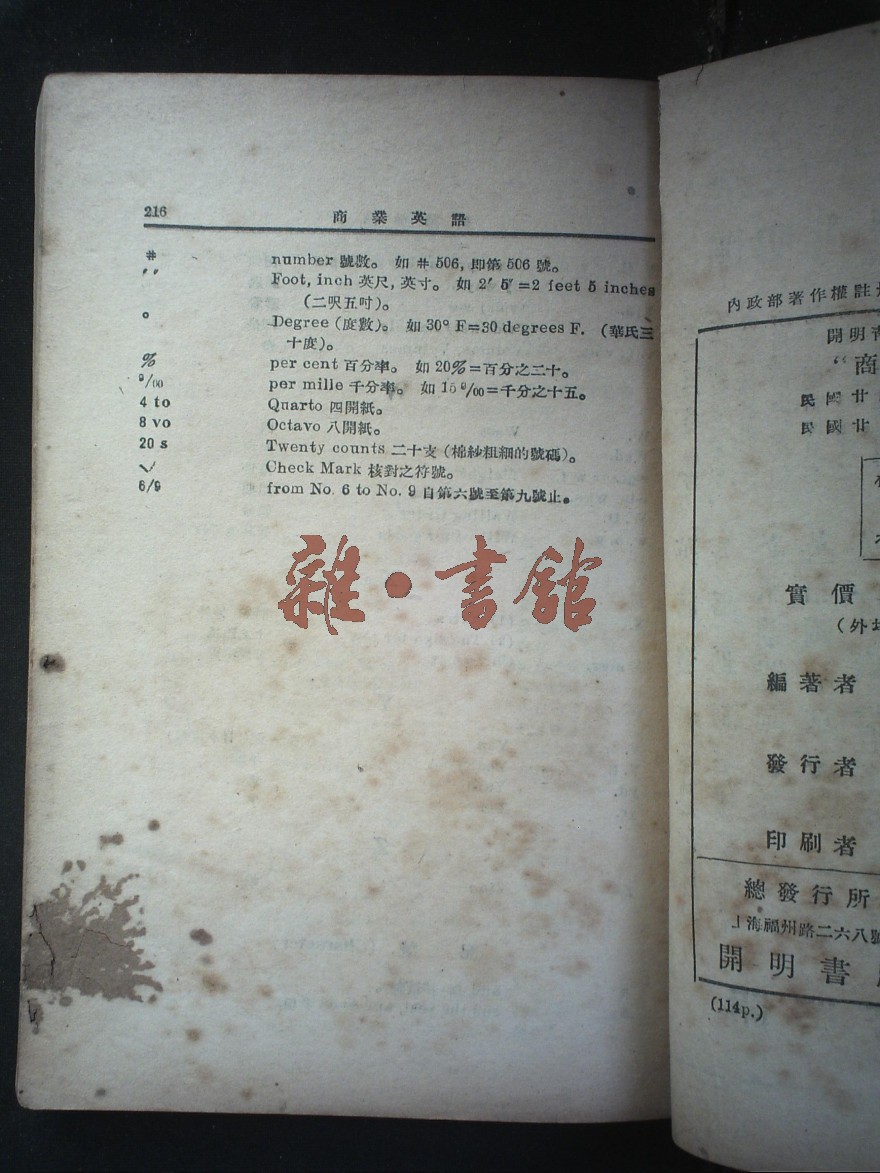 216 商業英語
# number 號數。 如 # 506, 即第 506 號。
′ ″ Foot, inch 英尺, 英寸。 如 2′ 5″=2 feet 5 inches
(二呎五吋)。
° Degree (度數)。 如 30° F=30 degrees F. (華氏三
十度)。
% per cent 百分率。 如 20%=百分之二十。
‰ per mille 千分率。 如 15‰=千分之十五。
4 to Quarto 四開紙。
8 vo Octavo 八開紙。
20 s Twenty counts 二十支 (棉紗粗細的號碼)。
✓ Check Mark 核對之符號。
6/9 from No. 6 to No. 9 自第六號至第九號止。
雜·書館
內政部著作權註
開明
“商
民國廿
民國廿
實價
(外
編著者
發行者
印刷者
總發行所
上海福州路二六八號
開明書
(114p.)